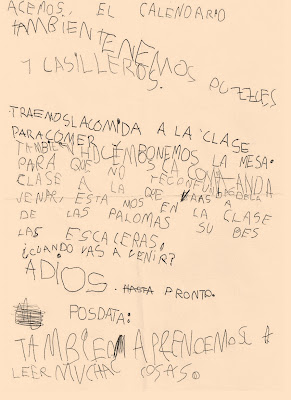 ACEMOS. EL CALENDARIO
TAMBIEN TENEMOS
Y CASILLEROS. PUZZLES
TRAEMOS LA COMIDA A LA CLASE
PARA COMER
TAMBIEN PONEMOS LA MESA.
PARA QUE NO
CLASE A LA QUE VAS A
JENAR, ESTAMOS EN LA CLASE
DE LAS PALOMAS SUBES
LAS ESCALERAS.
¿CUANDO VAS A VENIR?
ADIOS. HASTA PRONTO.
POSDATA:
TAMBIEN APRENDEMOS A
LEER MUCHAC OSAS.